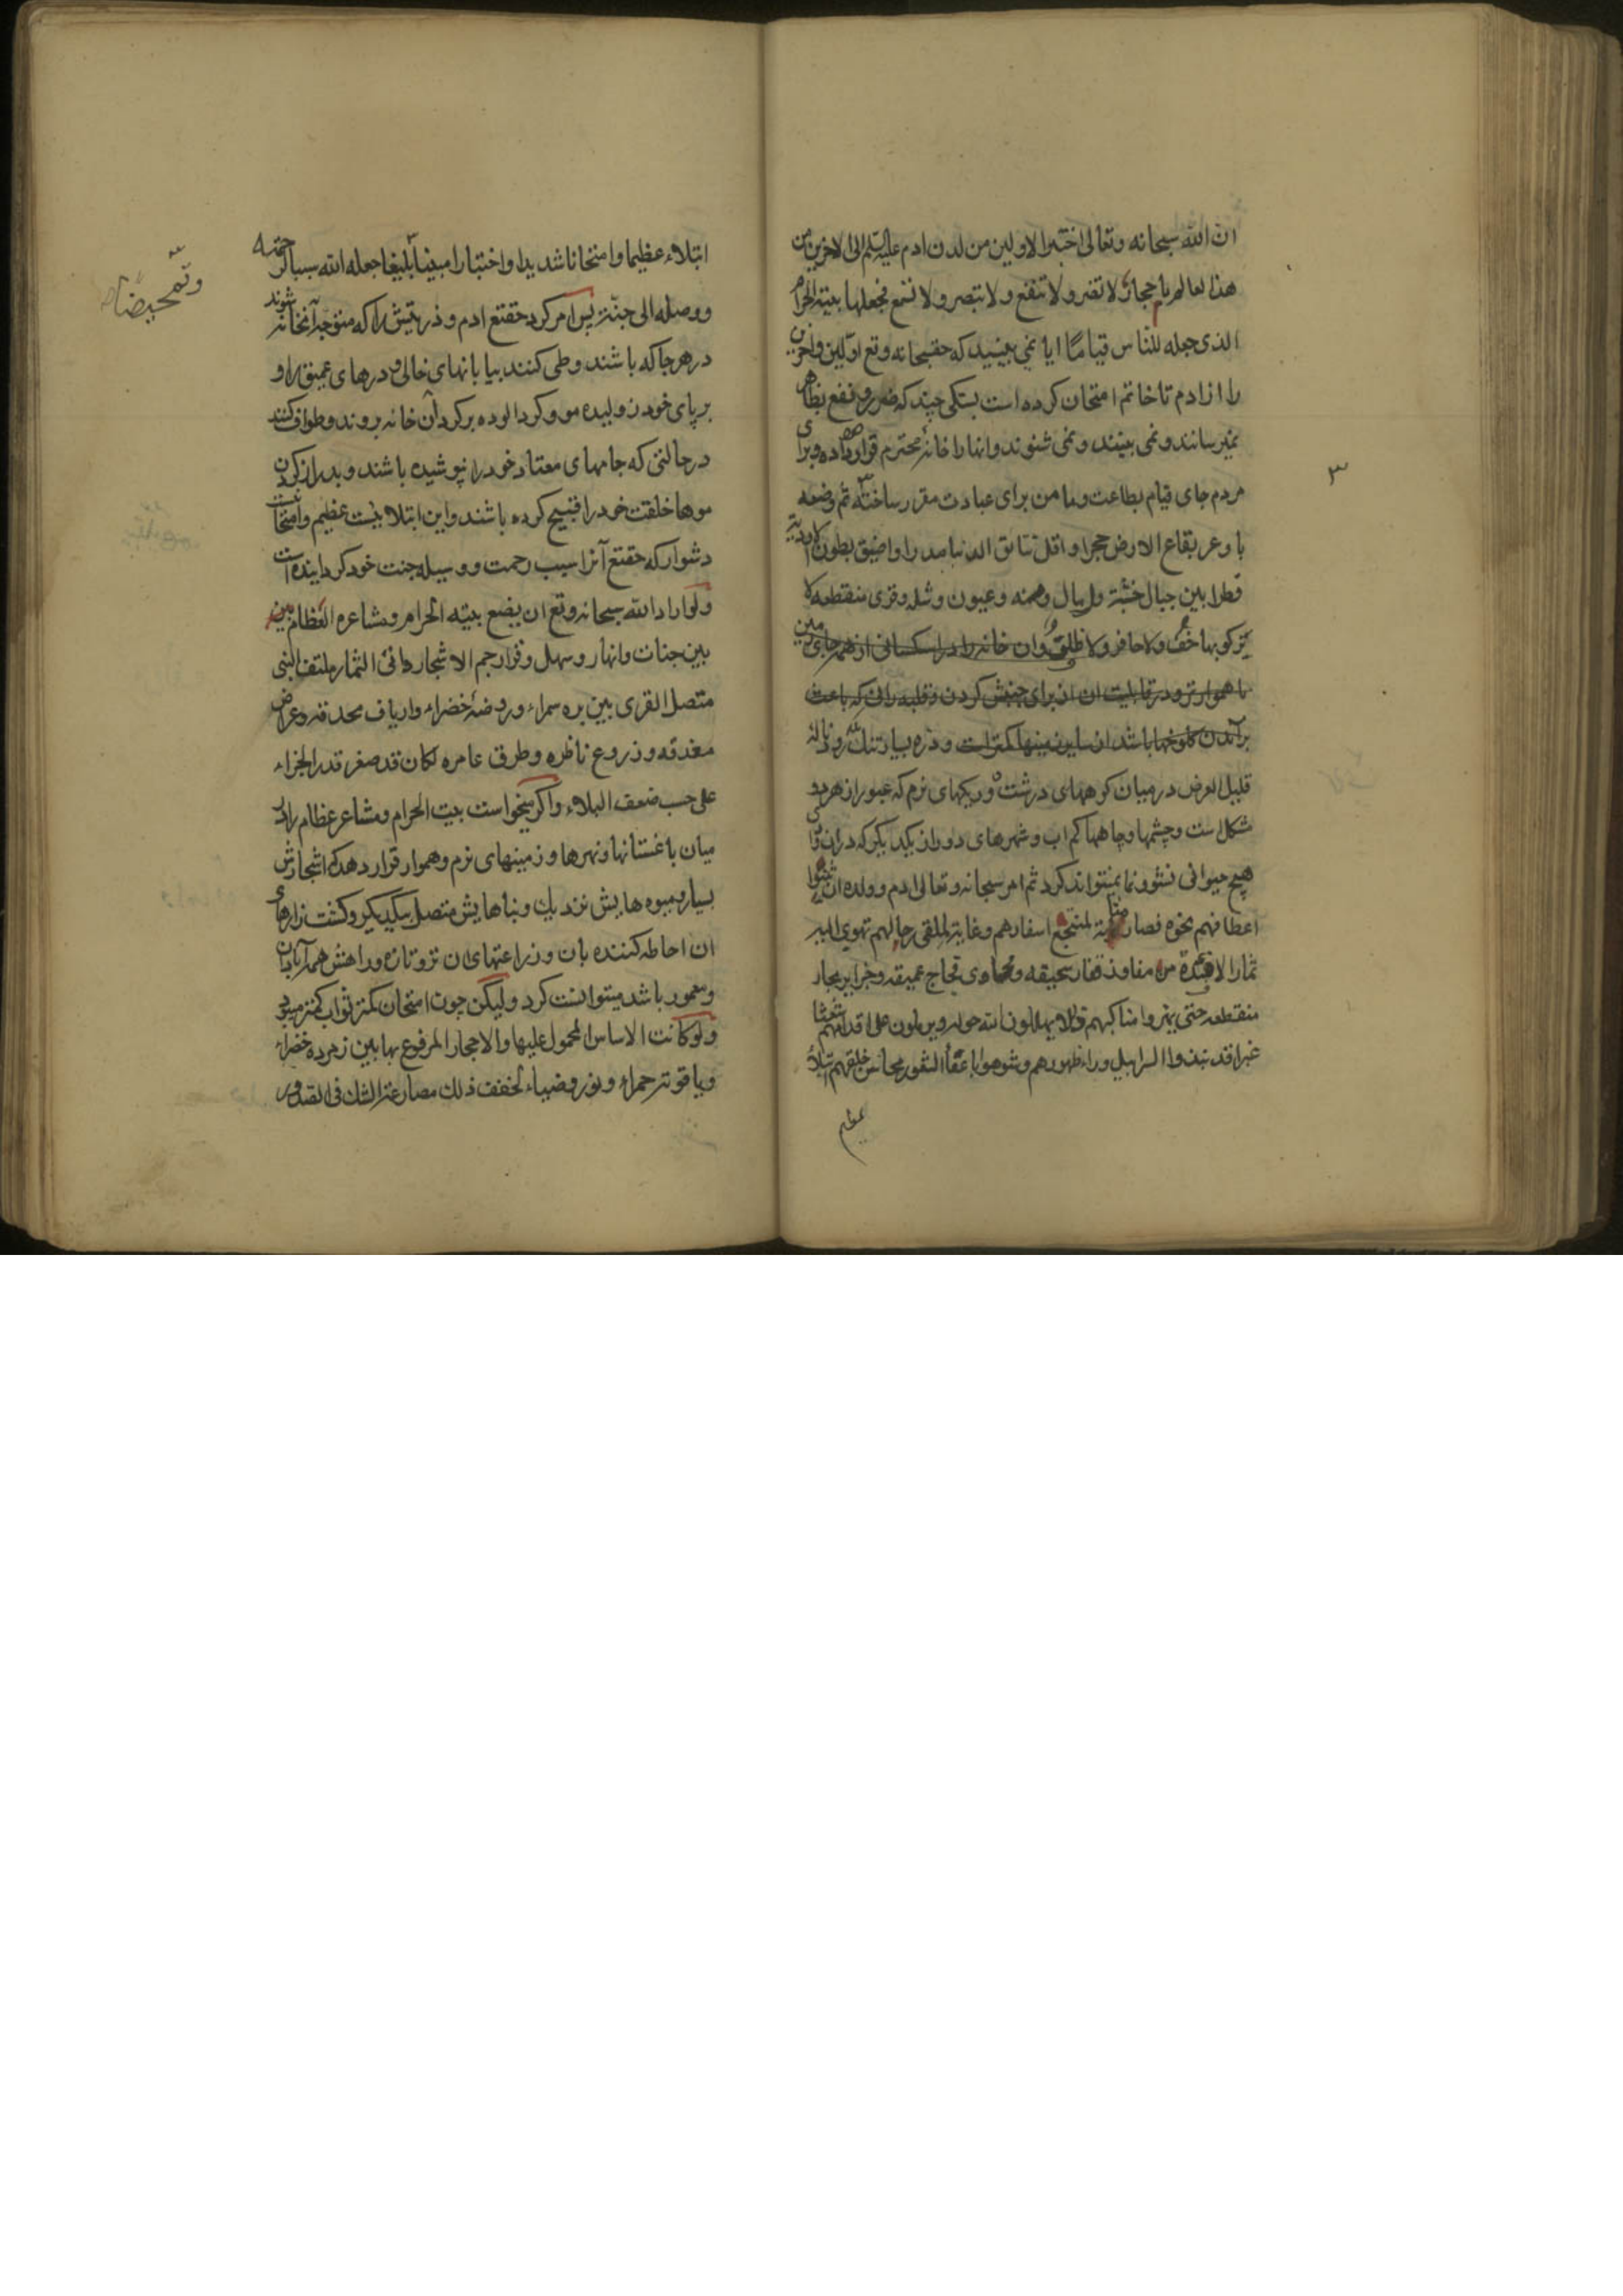 ان الله سبحانه وتعالى اختبر الاولين من لدن ادم عليه السلم الى الاخرين من
هذا لعالم باحجار لا تضر ولا تنفع ولا تبصر ولا تسمع فجعلها بيته الحرام
الذی جعله للناس قیاما ایا نمی بینید که حقسبحانه وتع اولین واخرین
را از ادم تا خاتم امتحان کرده است بسنکی چند که ضرر و نفع بظاهر
نمیرسانند ونمی بینند ونمی شنوند وانها را خانهٔ محترم قرار داده وبرای
مردم جای قیام بطاعت وما من برای عبادت مقرر ساخته ثم وضعه
باوعر بقاع الارض حجرا واقل نتائق الدنيا مدرا واضيق بطون الاودیة
قطرا بين جبال خشنة ورمال دمثه وعيون وشله وقری منقطعه لا
یزکو بها خف ولا حافر ولا ظلف وان خانه را در اسکسانی از همه جای زمین
ناهموارتر و در قابلیت ان از برای جنبش کردن و قلبه ران که باعث
برآمدن کلوخها باشد از سایر زمینها کمتر است و دره بسیار تنک رودخانه
قلیل العرض در میان کوههای درشت وریکهای نرم که عبور از هر دو
مشکل است وچشمها وچاهها کم اب و شهرهای دور از یکدیکر که دران
هیچ حیوانی نشو ونما نمیتواند کرد ثم امر سبحانه وتعالی ادم وولده ان یثنوا
اعطافهم نحوه فصار مثابة لمنتجع اسفارهم وغاية لملقى رحالهم تهوی الیه
ثمار الافئدة من مفاوز قفار سحيقه ومهاوی فجاج عمیقه وجزایر بحار
منقطعه حتى يهزوا مناكبهم ذللا یهللون لله حوله ویرملون على اقدامهم شعثا
غبرا قد نبذوا السرابیل وراء ظهورهم وشوهوا باعفاء الشعور محاسن خلقهم ابتلاء
عظیم
۳
ابتلاء عظیما وامتحانا شدیدا واختبارا مبینا بلیغا جعله الله سببا لرحمته
وتمحیضا صح
ووصله الی جنته پس امر کرد حقتع ادم و ذریتش را که متوجه آنخانه شوند
در هر جا که باشند وطی کنند بیابانهای خالی ودرهای عمیق را و
بر پای خود ژولیده مو وکرد الوده بر کرد آن خانه بروند وطواف کنند
در حالتی که جامهای معتاد خود را نپوشیده باشند وبدراز کردن
موها خلقت خود را قبیح کرده باشند واین ابتلائیست عظیم وامتحانیست
دشوار که حقتع آنرا سبب رحمت ووسیله جنت خود کردانیده است
ولو اراد الله سبحانه وتع ان يضع بيته الحرام ومشاعره العظام بین
بین جنات وانهار وسهل وقرار جم الاشجار دانی الثمار ملتف البنی
متصل القری بین بره سمراء وروضة خضراء واریاف محدقه وعراض
مغدقه وزروع ناظره وطرق عامره لکان قد صغر قدر الجزاء
علی حسب ضعف البلاء واکر میخواست بیت الحرام ومشاعر عظام را در
میان باغستانها ونهرها وزمینهای نرم وهموار قرار دهد که اشجارش
بسیار ومیوه هایش نزدیک وبناهایش متصل بیکدیکر وکشت زارهای
ان احاطه کننده بان وزراعتهای ان تر وتازه وراهش همه آبادان
ومعمور باشد میتوانست کرد ولیکن چون امتحان کمتر ثواب کمتر میبود
ولو کانت الاساس المحمول علیها والاحجار المرفوع بها بین زمرده خضراء
ویاقوته حمراء ونور وضیاء لخفف ذلک مصارعة الشک فی الصدور